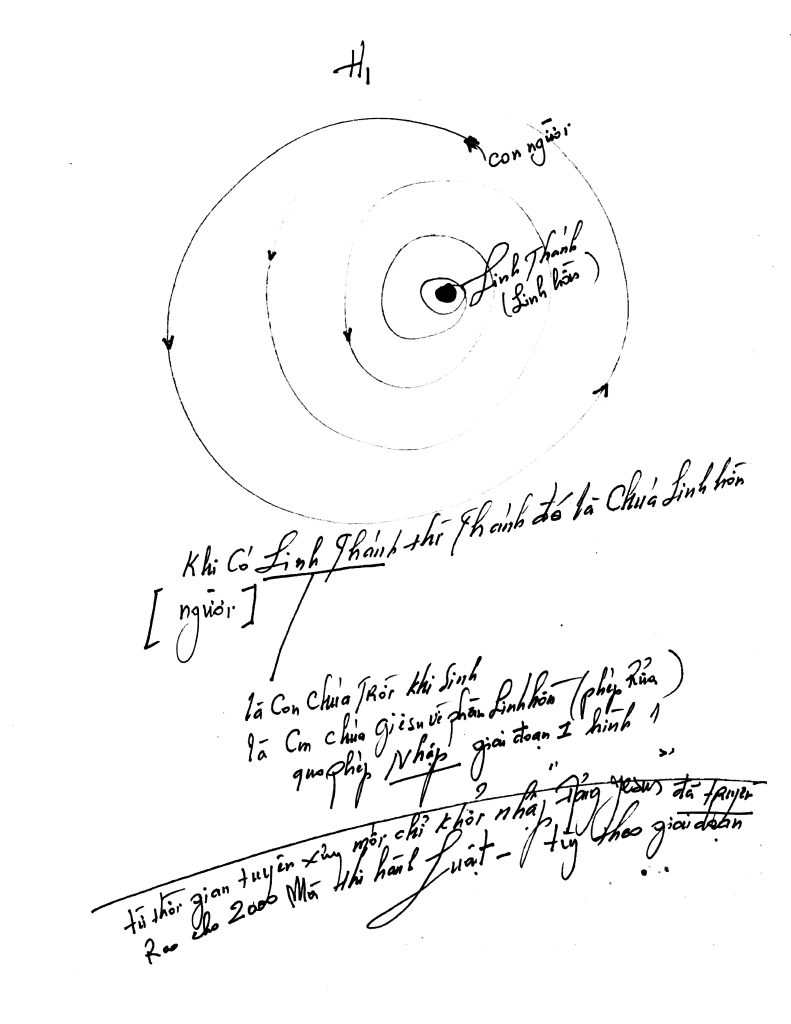 H1
con người
Linh Thánh
(Linh hồn)
Khi Có Linh Thánh thì Thánh đó là Chúa Linh hồn
[người]
là Con Chúa Trời khi sinh
là Con chúa Giêsu về phần Linh hồn (phép Rửa)
qua phép Nhập giai đoạn I hình 1
từ thời gian tuyên xưng mới chỉ khởi nhập " Tảng " đã truyền
Rao cho 2000 Mà thi hành Luật - tùy theo giai đoạn
...